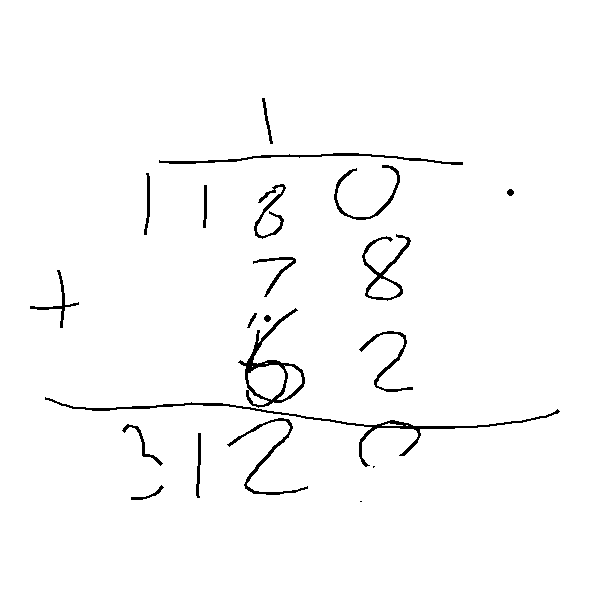 1
1180
78
+
62
3120